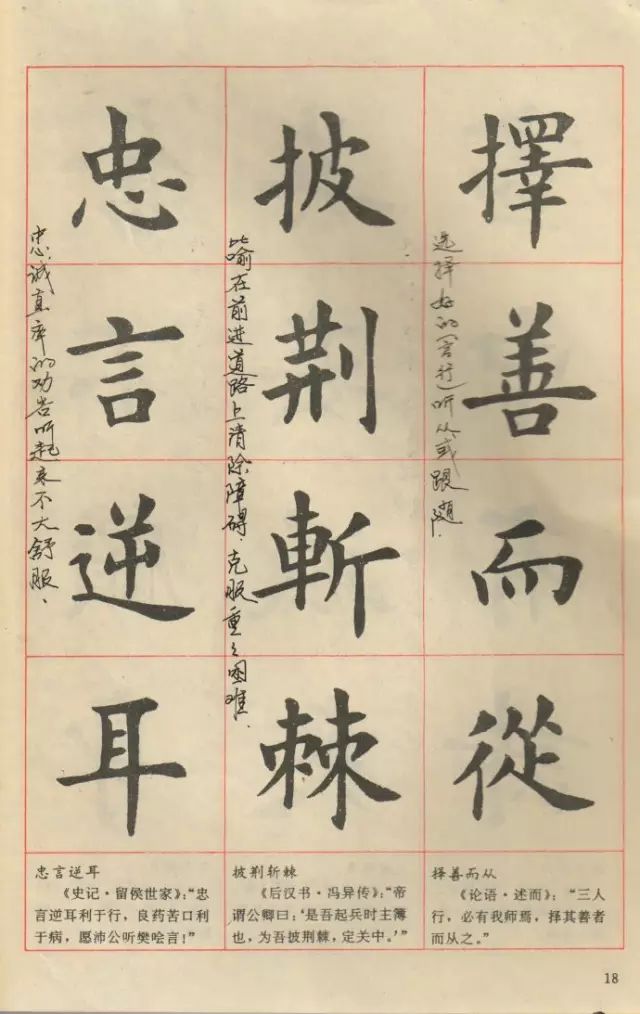 擇善而從
选择好的(言行)听从或跟随.
披荆斬棘
比喻在前进道路上清除障碍.克服重々困难.
忠言逆耳
忠诚真率的劝告听起来不大舒服.
择善而从
《论语·述而》：“三人
行，必有我师焉，择其善者
而从之。”
披荆斩棘
《后汉书·冯异传》：“帝
谓公卿曰：‘是吾起兵时主簿
也，为吾披荆棘，定关中。’”
忠言逆耳
《史记·留侯世家》：“忠
言逆耳利于行，良药苦口利
于病，愿沛公听樊哙言！”
18